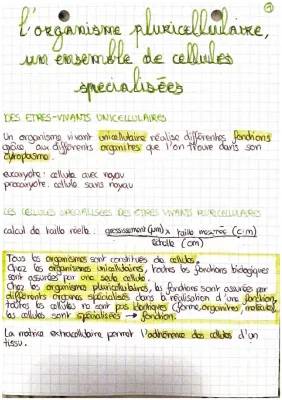 L'organisme pluricellulaire,
un ensemble de cellules
spécialisées
DES ETRES-VIVANTS UNICELLULAIRES
Un organisme vivant unicellulaire réalise différentes fonctions
grâce aux différents organites que l'on trouve dans son
cytoplasme.
eucaryote : cellule avec noyau
procaryote : cellule sans noyau
LES CELLULES SPECIALISEES DES ETRES VIVANTS PLURICELLULAIRES
calcul de taille réelle : grossissement (µm) x taille mesurée (cm)
échelle (cm)
Tous les organismes sont constitués de cellules.
Chez les organismes unicellulaires, toutes les fonctions biologiques
sont assurées par une seule cellule.
Chez les organismes pluricellulaires, les fonctions sont assurées par
différents organes spécialisés dans la réalisation d'une fonction,
toutes les cellules ne sont pas identiques (forme, organites, molécules)
les cellules sont spécialisées → fonction.
La matrice extracellulaire permet l'adhérence des cellules d'un
tissu.